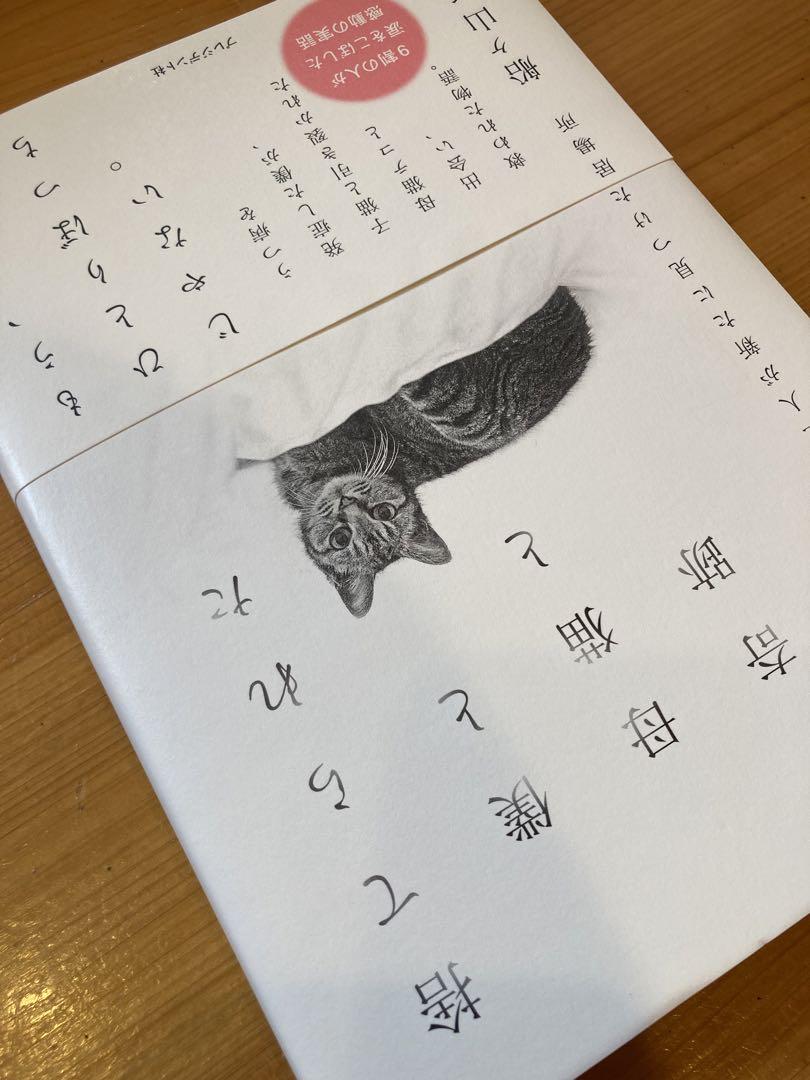 捨てられた
僕と
母猫と
奇跡
人が新たに見つけた居場所
船ヶ山
もう、
ひとりぼっち
じゃない。
うつ病を
発症した僕が、
子猫と引き裂かれた
母猫テコと
出会い、
救われた物語。
9割の人が
涙をこぼした
感動の実話
プレジデント社